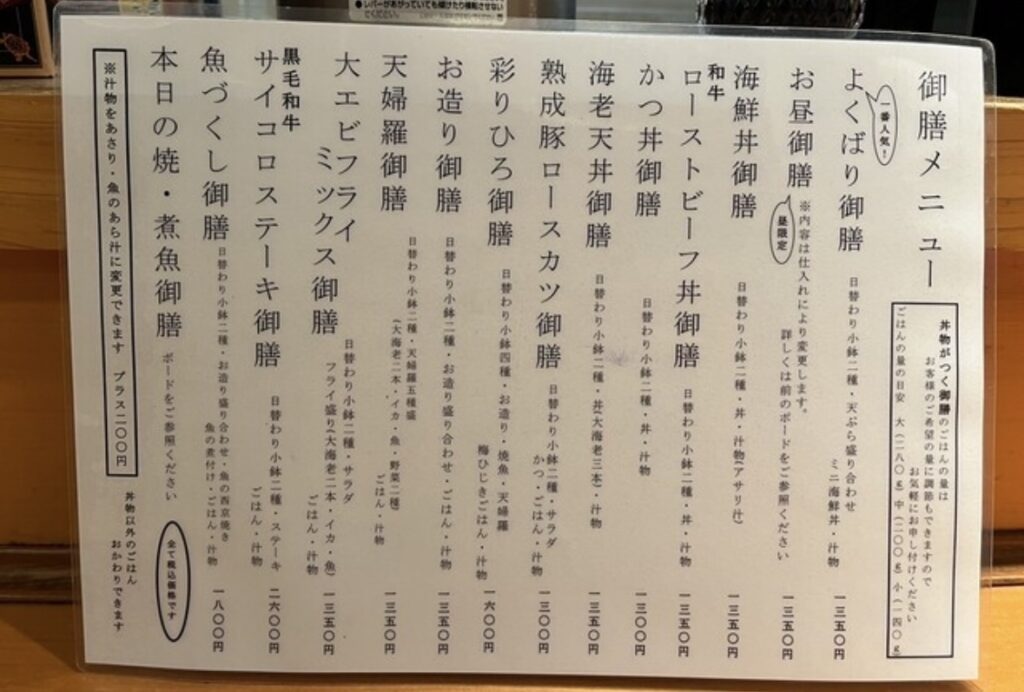 ●レバーがあがっていても傾けたり横転させない
でください。
御膳メニュー
丼物がつく御膳のごはんの量は
お客様のご希望の量に調節もできますので
お気軽にお申し付けください
ごはんの量の目安 大(二八〇g)中(二〇〇g)小(一四〇g)
一番人気!
よくばり御膳 日替わり小鉢二種・天ぷら盛り合わせ
ミニ海鮮丼・汁物 一三五〇円
お昼御膳 ※内容は仕入れにより変更します。
昼限定
詳しくは前のボードをご参照ください 一三五〇円
海鮮丼御膳 日替わり小鉢二種・丼・汁物(アサリ汁) 一三五〇円
和牛
ローストビーフ丼御膳 日替わり小鉢二種・丼・汁物 一三五〇円
かつ丼御膳 日替わり小鉢二種・丼・汁物 一三〇〇円
海老天丼御膳 日替わり小鉢二種・丼(大海老三本)・汁物 一三五〇円
熟成豚ロースカツ御膳 日替わり小鉢二種・サラダ
かつ・ごはん・汁物 一三〇〇円
彩りひろ御膳 日替わり小鉢四種・お造り・焼魚・天婦羅
梅ひじきごはん・汁物 一六〇〇円
お造り御膳 日替わり小鉢二種・お造り盛り合わせ・ごはん・汁物 一三五〇円
天婦羅御膳 日替わり小鉢二種・天婦羅五種盛
(大海老二本・イカ・魚・野菜二種)
ごはん・汁物 一三五〇円
大エビフライ
ミックス御膳 日替わり小鉢二種・サラダ
フライ盛り(大海老二本・イカ・魚)
ごはん・汁物 一三五〇円
黒毛和牛
サイコロステーキ御膳 日替わり小鉢二種・ステーキ
ごはん・汁物 二六〇〇円
魚づくし御膳 日替わり小鉢二種・お造り盛り合わせ・魚の西京焼き
魚の煮付け・ごはん・汁物 一八〇〇円
本日の焼・煮魚御膳 ボードをご参照ください
全て税込価格です
※汁物をあさり・魚のあら汁に変更できます プラス二〇〇円
丼物以外のごはん
おかわりできます